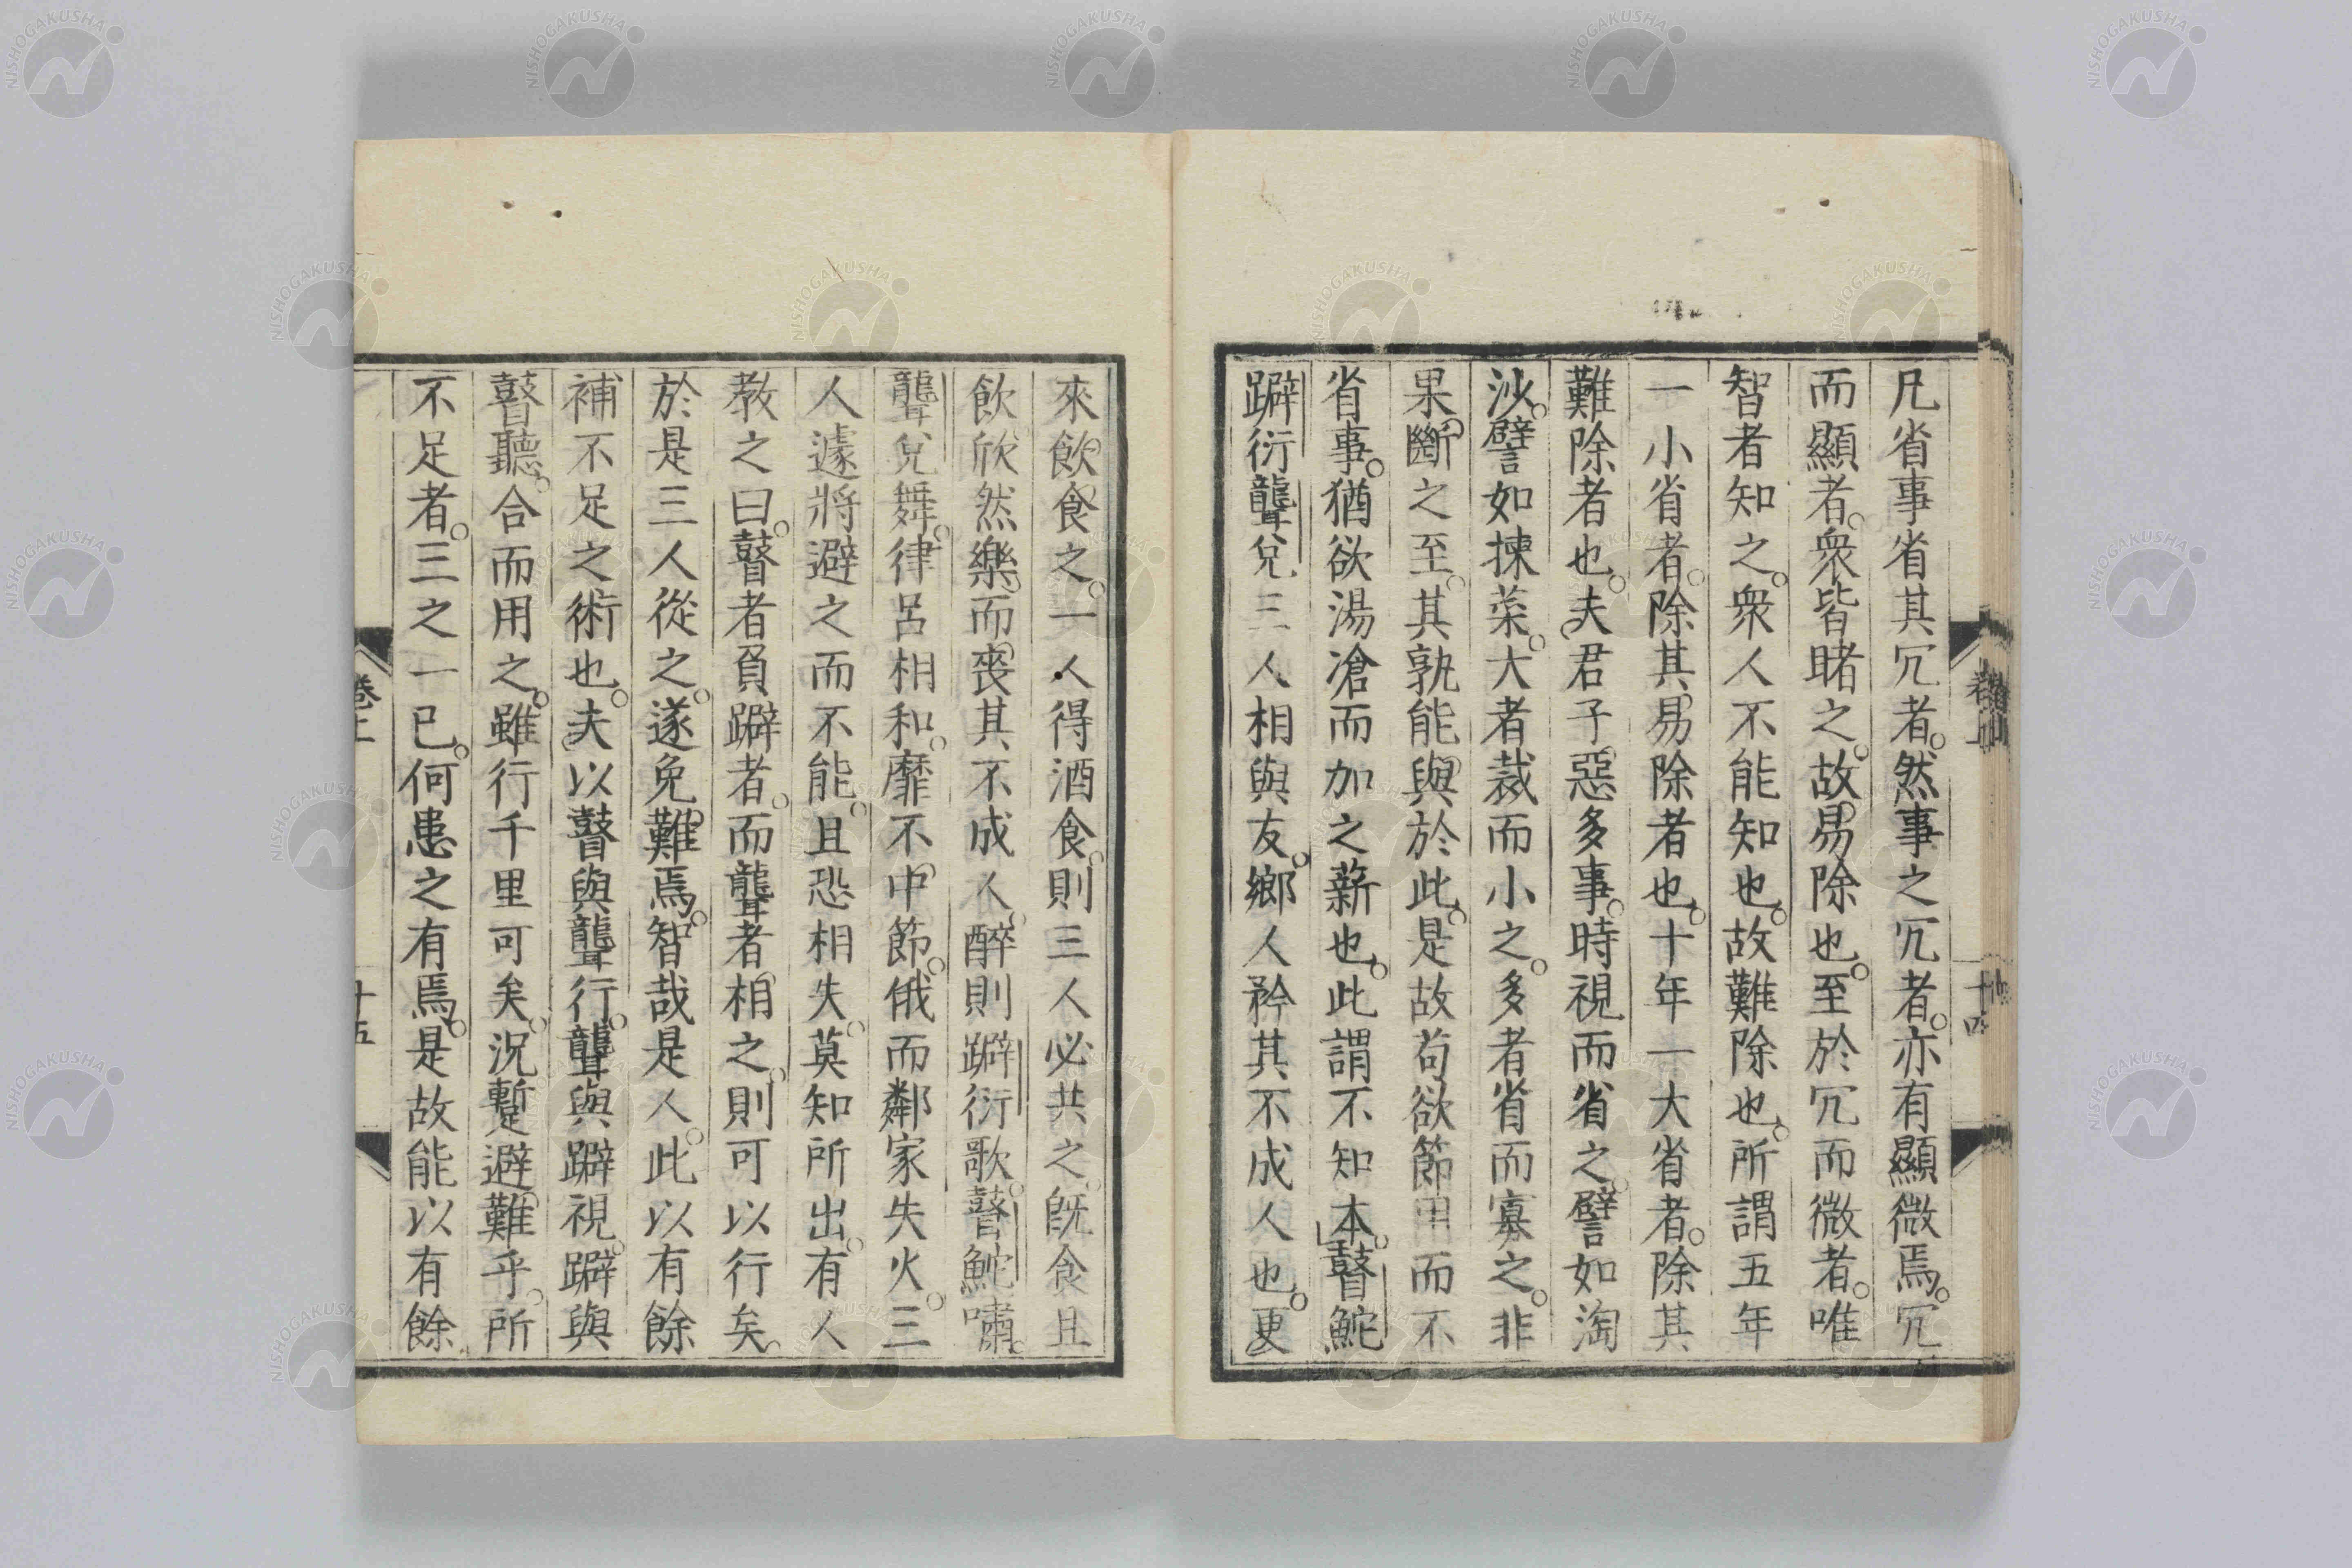 凡省事省其冗者。然事之冗者。亦有顯微焉。冗
而顯者。衆皆睹之。故易除也。至於冗而微者。唯
智者知之。衆人不能知也。故難除也。所謂五年
一小省者。除其易除者也。十年一大省者。除其
難除者也。夫君子惡多事。時視而省之。譬如淘
沙。譬如揀菜。大者裁而小之。多者省而寡之。非
果斷之至。其孰能與於此。是故苟欲節用而不
省事。猶欲湯滄而加之薪也。此謂不知本。瞽鮀
躃衍聾兌三人相與友。鄉人矜其不成人也。更
來飲食之。一人得酒食。則三人必共之。既食且
飲。欣然樂而喪其不成人。醉則躃衍歌。瞽鮀嘯。
聾兌舞。律呂相和。靡不中節。俄而鄰家失火。三
人遽將避之而不能。且恐相失。莫知所出。有人
教之曰。瞽者負躃者。而聾者相之。則可以行矣。
於是三人從之。遂免難焉。智哉是人。此以有餘
補不足之術也。夫以瞽與聾行。聾與躃視。躃與
瞽聽。合而用之。雖行千里可矣。況暫避難乎。所
不足者。三之一已。何患之有焉。是故能以有餘
卷上
十四
卷上
十五
NISHOGAKUSHA